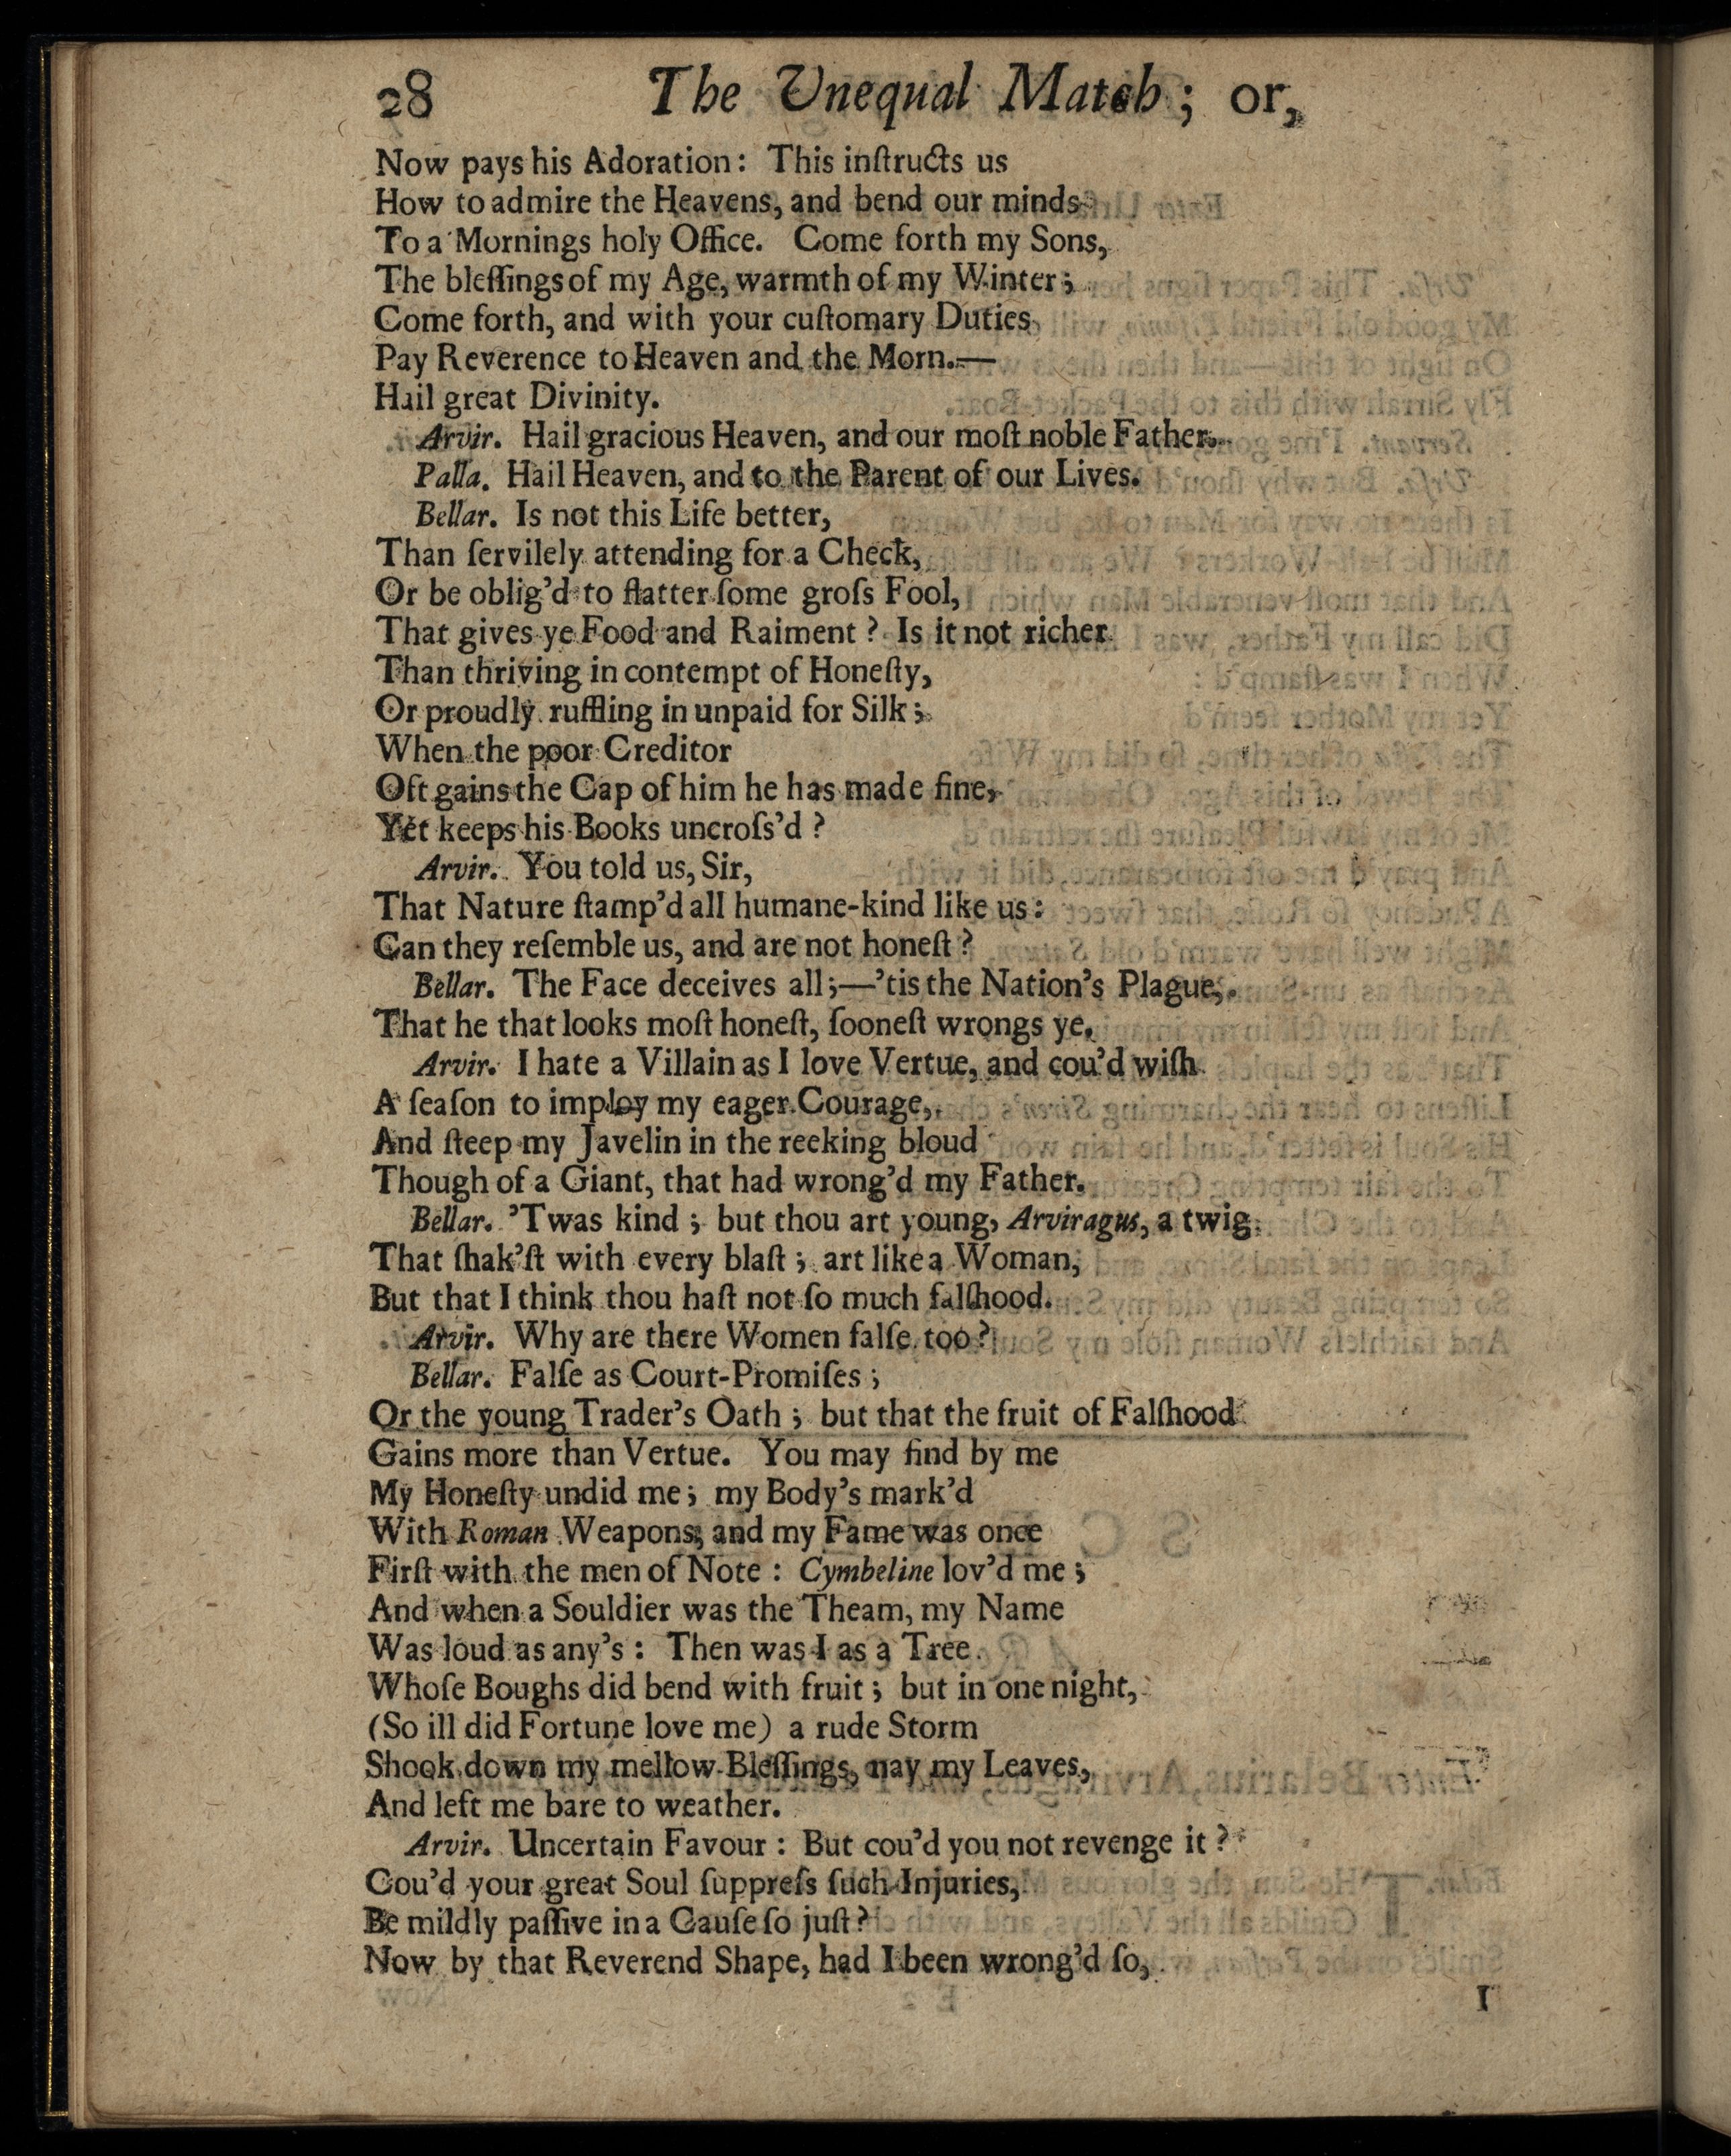 28 The Unequal Match; or,
Now pays his Adoration: This inſtructs us
How to admire the Heavens, and bend our minds
To a Mornings holy Office. Come forth my Sons,
The bleſſings of my Age, warmth of my Winter;
Come forth, and with your cuſtomary Duties
Pay Reverence to Heaven and the Morn.—
Hail great Divinity.
Arvir. Hail gracious Heaven, and our moſt noble Father.
Palla. Hail Heaven, and to the Parent of our Lives.
Bellar. Is not this Life better,
Than ſervilely attending for a Check,
Or be oblig'd to flatter ſome groſs Fool,
That gives ye Food and Raiment? Is it not richer
Than thriving in contempt of Honeſty,
Or proudly ruffling in unpaid for Silk;
When the poor Creditor
Oft gains the Cap of him he has made fine,
Yet keeps his Books uncroſs'd?
Arvir. You told us, Sir,
That Nature ſtamp'd all humane-kind like us:
Can they reſemble us, and are not honeſt?
Bellar. The Face deceives all;—'tis the Nation's Plague,
That he that looks moſt honeſt, ſooneſt wrongs ye.
Arvir. I hate a Villain as I love Vertue, and cou'd wiſh
A ſeaſon to imploy my eager Courage,
And ſteep my Javelin in the reeking bloud
Though of a Giant, that had wrong'd my Father.
Bellar. 'Twas kind; but thou art young, Arviragus, a twig
That ſhak'ſt with every blaſt; art like a Woman,
But that I think thou haſt not ſo much falſhood.
Arvir. Why are there Women falſe too?
Bellar. Falſe as Court-Promiſes;
Or the young Trader's Oath; but that the fruit of Falſhood
Gains more than Vertue. You may find by me
My Honeſty undid me; my Body's mark'd
With Roman Weapons; and my Fame was once
Firſt with the men of Note: Cymbeline lov'd me;
And when a Souldier was the Theam, my Name
Was loud as any's: Then was I as a Tree
Whoſe Boughs did bend with fruit; but in one night,
(So ill did Fortune love me) a rude Storm
Shook down my mellow Bleſſings, nay my Leaves,
And left me bare to weather.
Arvir. Uncertain Favour: But cou'd you not revenge it?
Cou'd your great Soul ſuppreſs ſuch Injuries,
Be mildly paſſive in a Cauſe ſo juſt?
Now by that Reverend Shape, had I been wrong'd ſo,
I